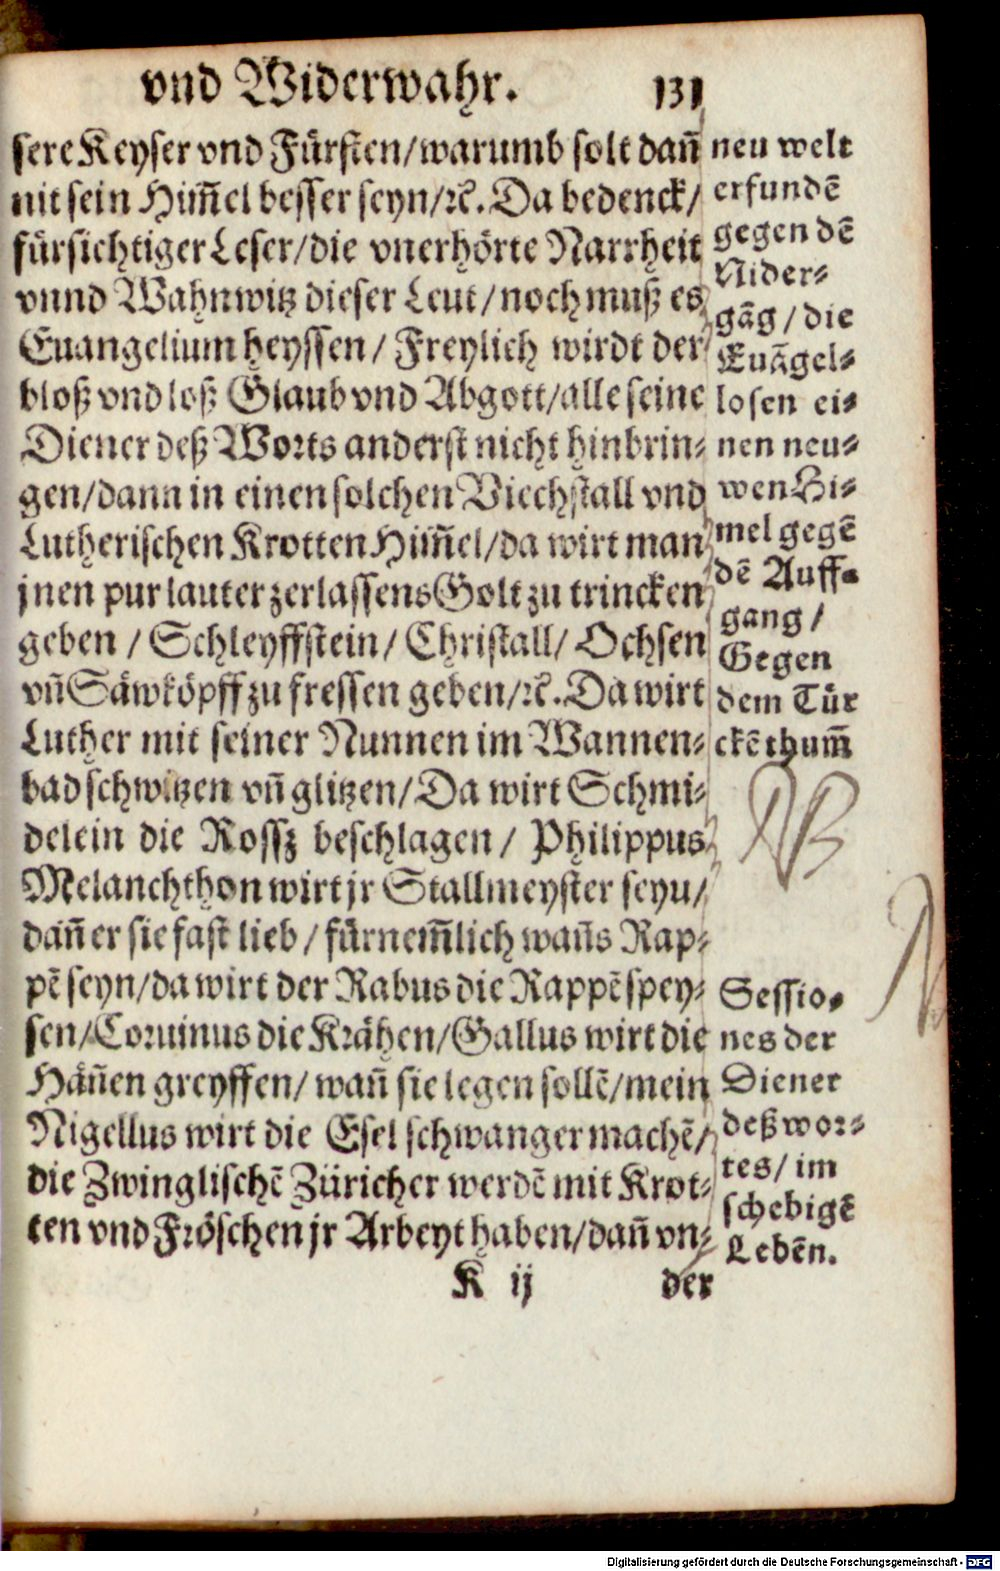 vnd Widerwahr. 131
sere Keyser vnd Fürsten/warumb solt dañ
nit sein Him̃el besser seyn/ꝛc̃. Da bedenck/
fürsichtiger Leser/die vnerhörte Narrheit
vnnd Wahnwitz dieser Leut/noch muß es
Euangelium heyssen/ Freylich wirdt der
bloß vnd loß Glaub vnd Abgott/alle seine
Diener deß Worts anderst nicht hinbrin⸗
gen/dann in einen solchen Viechstall vnd
Lutherischen Krotten Him̃el/da wirt man
jnen pur lauter zerlassens Golt zu trincken
geben / Schleyffstein/ Christall/ Ochsen
vñ Säwköpff zu fressen geben/ꝛc̃. Da wirt
Luther mit seiner Nunnen im Wannen⸗
bad schwitzen vñ glitzen/Da wirt Schmi⸗
delein die Rossz beschlagen/ Philippus
Melanchthon wirt jr Stallmeyster seyu/
dañ er sie fast lieb/ fürnem̃lich wañs Rap⸗
pẽ seyn/da wirt der Rabus die Rappẽ spey⸗
sen/Coruinus die Krähen/Gallus wirt die
Häñen greyffen/ wañ sie legen sollẽ/mein
Nigellus wirt die Esel schwanger machẽ/
die Zwinglischẽ Züricher werdẽ mit Krot⸗
ten vnd Fröschen jr Arbeyt haben/dañ vn⸗
K ij der
neu welt
erfundẽ
gegen dẽ
Nider⸗
gãg/die
Euãgel⸗
losen ei⸗
nen neu⸗
wen Hi⸗
mel gegẽ
dẽ Auff⸗
gang/
Gegen
dem Tür
ckẽthum̃
NB
Sessio⸗
nes der
Diener
deß wor⸗
tes/ im
schebigẽ
Lebẽn.
Digitalisierung gefördert durch die Deutsche Forschungsgemeinschaft - DFG